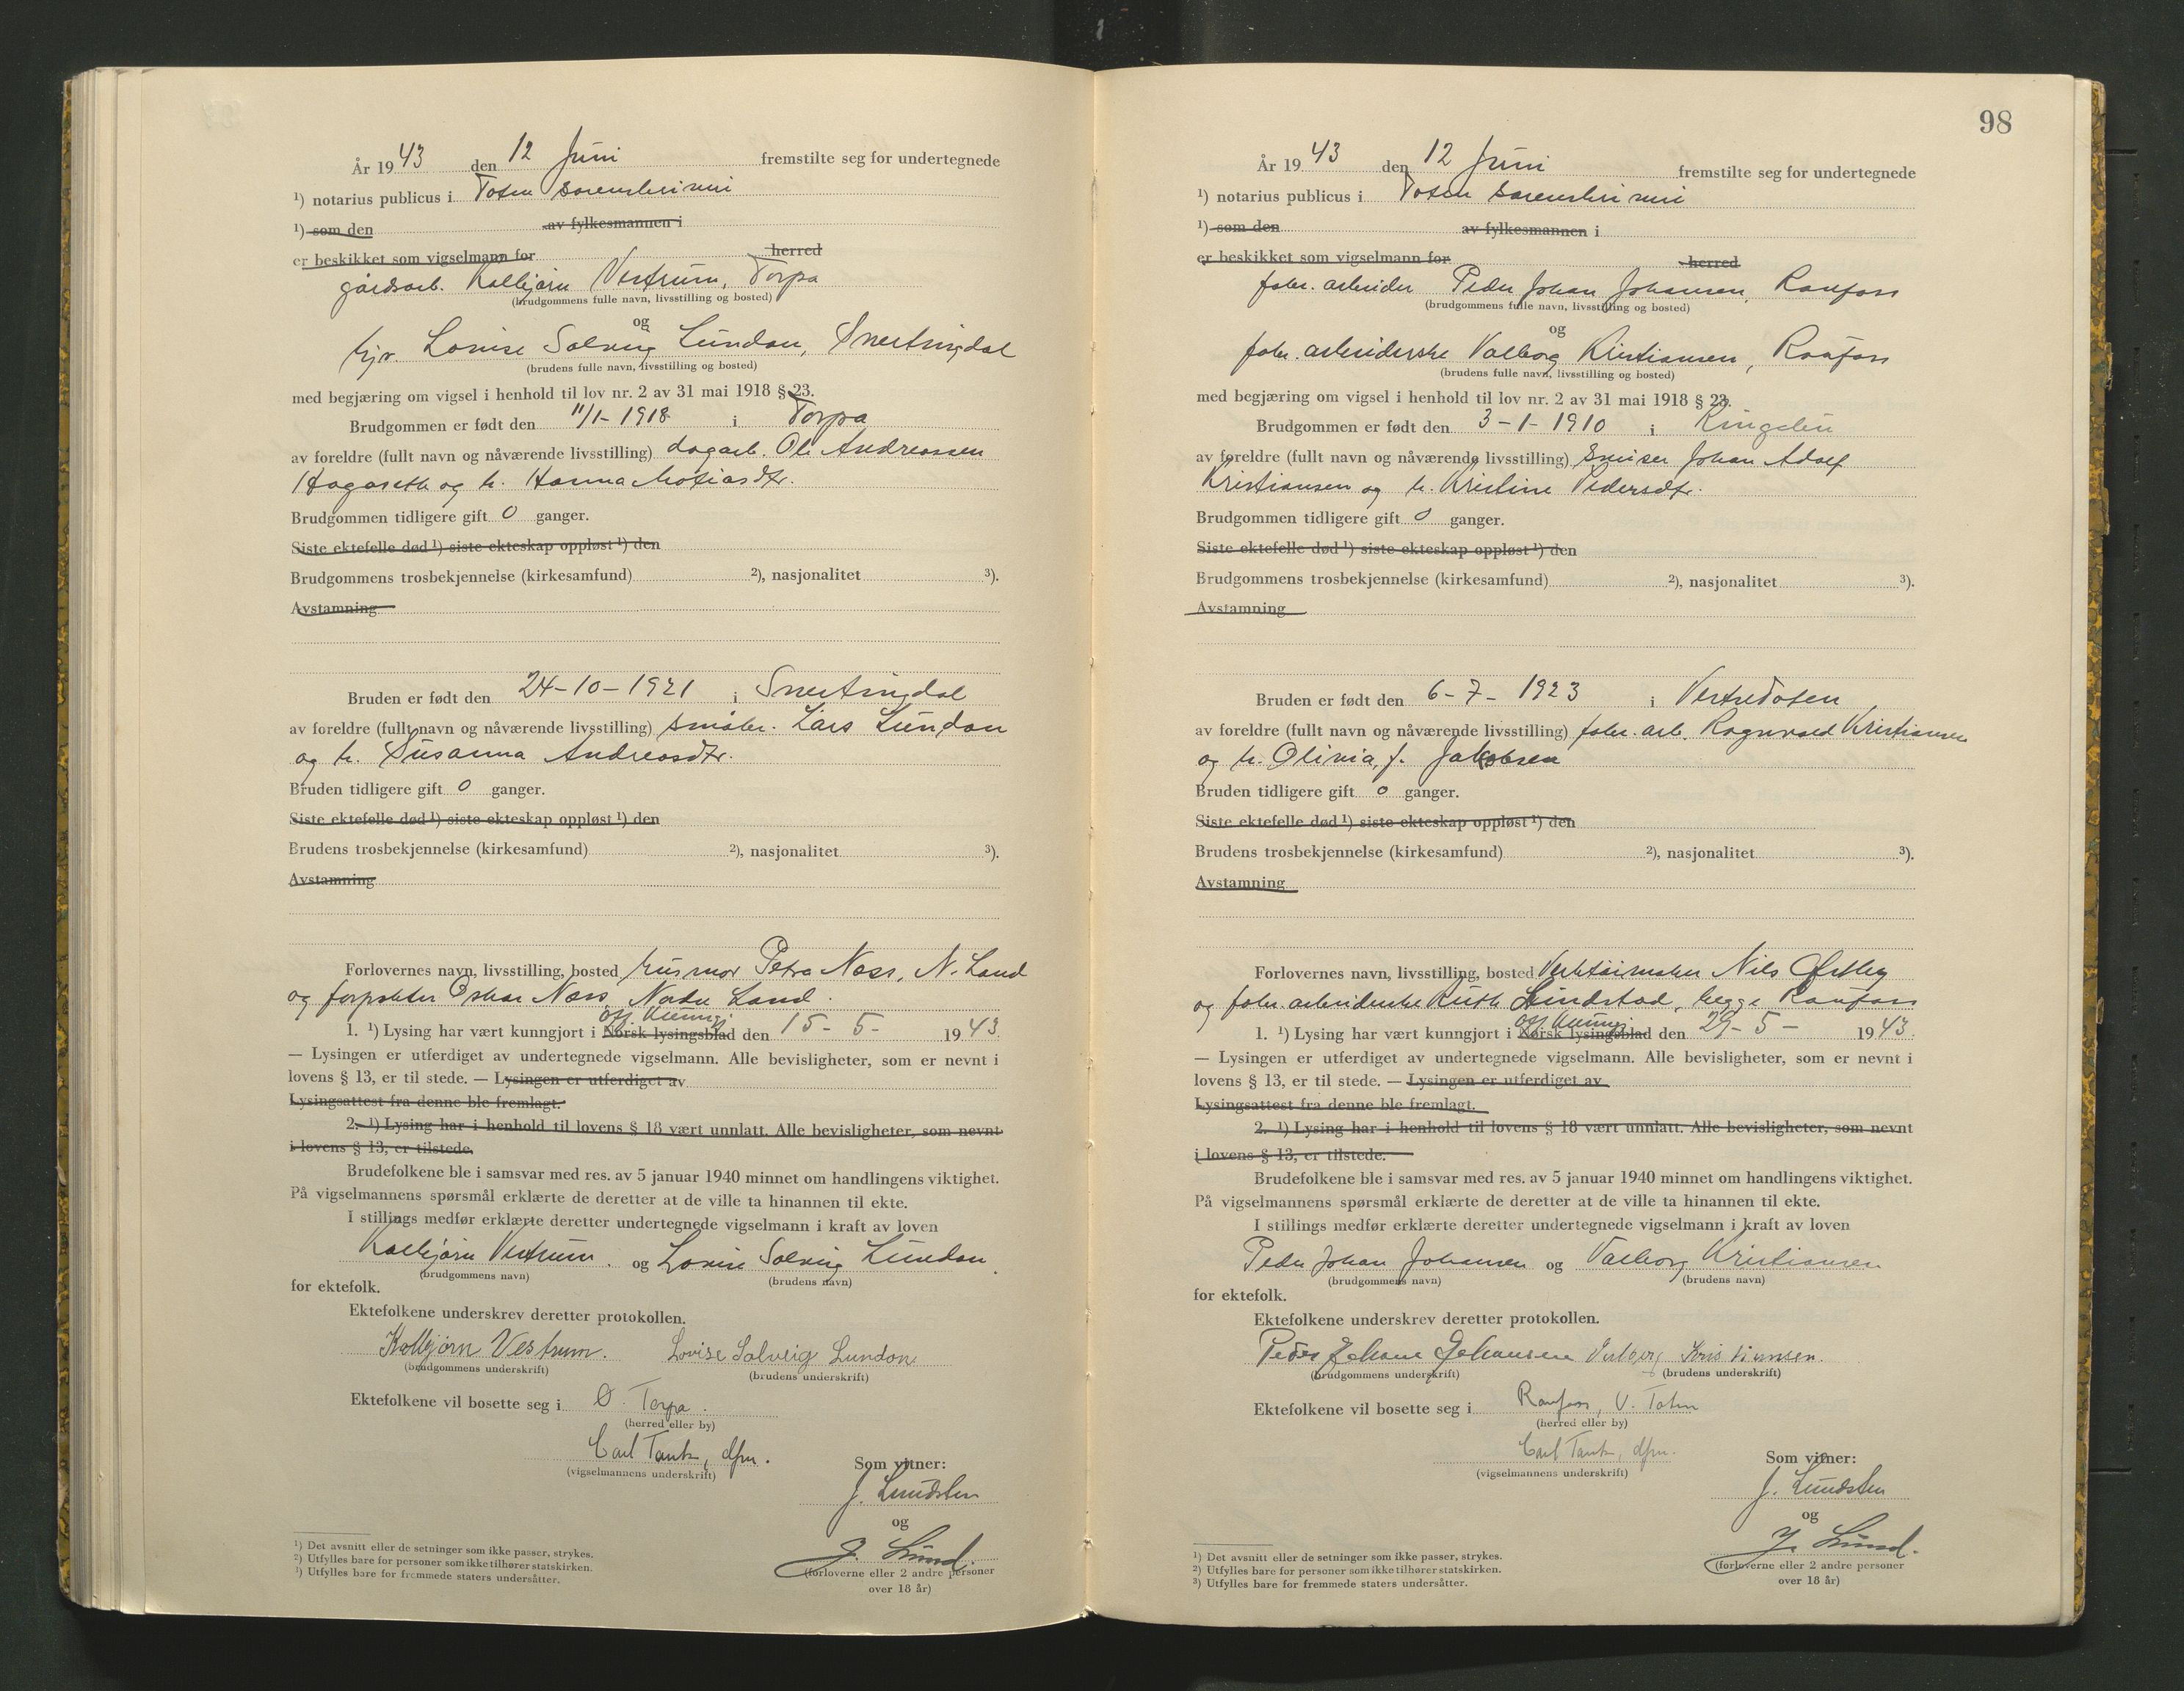 År 1943 den 12 Juni fremstilte seg for undertegnede
¹) notarius publicus i Toten sorenskriveri
¹) som den av fylkesmannen i
er beskikket som vigselmann for herred
gårdsarb. Kolbjørn Vestrum, Torpa
(brudgommens fulle navn, livsstilling og bosted)
og
hjv. Lovise Solveig Lundon, Snertingdal
(brudens fulle navn, livsstilling og bosted)
med begjæring om vigsel i henhold til lov nr. 2 av 31 mai 1918 § 23.
Brudgommen er født den 11/1-1918 i Torpa
av foreldre (fullt navn og nåværende livsstilling) dagarb. Ole Andreassen
Hagaseth og h. Hanna Matiasdtr.
Brudgommen tidligere gift 0 ganger.
Siste ektefelle død ¹) siste ekteskap oppløst ¹) den
Brudgommens trosbekjennelse (kirkesamfund) ²), nasjonalitet ³).
Avstamning
Bruden er født den 24-10-1921 i Snertingdal
av foreldre (fullt navn og nåværende livsstilling) småbr. Lars Lundon
og h. Susanna Andreasdtr.
Bruden tidligere gift 0 ganger.
Siste ektefelle død ¹) siste ekteskap oppløst ¹) den
Brudens trosbekjennelse (kirkesamfund) ²), nasjonalitet ³).
Avstamning
Forlovernes navn, livsstilling, bosted husmor Petra Næss, N. Land
og forpakter Oskar Næss, Nordre Land.
off. kunngj.
1. ¹) Lysing har vært kunngjort i Norsk lysingsblad den 15-5- 1943.
— Lysingen er utferdiget av undertegnede vigselmann. Alle bevisligheter, som er nevnt i
lovens § 13, er til stede. — Lysingen er utferdiget av
Lysingsattest fra denne ble fremlagt.
2. ¹) Lysing har i henhold til lovens § 18 vært unnlatt. Alle bevisligheter, som nevnt
i lovens § 13, er tilstede.
Brudefolkene ble i samsvar med res. av 5 januar 1940 minnet om handlingens viktighet.
På vigselmannens spørsmål erklærte de deretter at de ville ta hinannen til ekte.
I stillings medfør erklærte deretter undertegnede vigselmann i kraft av loven
Kolbjørn Vestrum. og Lovise Solveig Lundon.
(brudgommens navn) (brudens navn)
for ektefolk.
Ektefolkene underskrev deretter protokollen.
Kolbjørn Vestrum. Lovise Solveig Lundon.
(brudgommens underskrift) (brudens underskrift)
Ektefolkene vil bosette seg i Ø. Torpa.
(herred eller by)
Carl Tank, dfm.
(vigselmannens underskrift)
Som vitner:
J. Lundsten
og
J. Lund.
(forloverne eller 2 andre personer
over 18 år)
¹) Det avsnitt eller de setninger som ikke passer, strykes.
²) Utfylles bare for personer som ikke tilhører statskirken.
³) Utfylles bare for fremmede staters undersåtter.
98
År 1943 den 12 Juni fremstilte seg for undertegnede
¹) notarius publicus i Toten sorenskriveri
¹) som den av fylkesmannen i
er beskikket som vigselmann for herred
fabr. arbeider Peder Johan Johansen, Raufoss
(brudgommens fulle navn, livsstilling og bosted)
og
fabr. arbeiderske Valborg Kristiansen, Raufoss
(brudens fulle navn, livsstilling og bosted)
med begjæring om vigsel i henhold til lov nr. 2 av 31 mai 1918 § 23.
Brudgommen er født den 3-1-1910 i Ringebu
av foreldre (fullt navn og nåværende livsstilling) Johan Adolf
Kristiansen og h. Kristine Pedersdtr.
Brudgommen tidligere gift 0 ganger.
Siste ektefelle død ¹) siste ekteskap oppløst ¹) den
Brudgommens trosbekjennelse (kirkesamfund) ²), nasjonalitet ³).
Avstamning
Bruden er født den 6-7-1923 i Vestre Toten
av foreldre (fullt navn og nåværende livsstilling) fabr. arb. Ragnvald Kristiansen
og h. Olivia, f. Jakobsen
Bruden tidligere gift 0 ganger.
Siste ektefelle død ¹) siste ekteskap oppløst ¹) den
Brudens trosbekjennelse (kirkesamfund) ²), nasjonalitet ³).
Avstamning
Forlovernes navn, livsstilling, bosted Verktøimaker Nils Østby
og fabr. arbeiderske Ruth Lindstad, begge Raufoss
off. kunngj.
1. ¹) Lysing har vært kunngjort i Norsk lysingsblad den 29-5- 1943.
— Lysingen er utferdiget av undertegnede vigselmann. Alle bevisligheter, som er nevnt i
lovens § 13, er til stede. — Lysingen er utferdiget av
Lysingsattest fra denne ble fremlagt.
2. ¹) Lysing har i henhold til lovens § 18 vært unnlatt. Alle bevisligheter, som nevnt
i lovens § 13, er tilstede.
Brudefolkene ble i samsvar med res. av 5 januar 1940 minnet om handlingens viktighet.
På vigselmannens spørsmål erklærte de deretter at de ville ta hinannen til ekte.
I stillings medfør erklærte deretter undertegnede vigselmann i kraft av loven
Peder Johan Johansen og Valborg Kristiansen
(brudgommens navn) (brudens navn)
for ektefolk.
Ektefolkene underskrev deretter protokollen.
Peder Johan Johansen Valborg Kristiansen.
(brudgommens underskrift) (brudens underskrift)
Ektefolkene vil bosette seg i Raufoss, V. Toten
(herred eller by)
Carl Tank, dfm.
(vigselmannens underskrift)
Som vitner:
J. Lundsten
og
J. Lund.
(forloverne eller 2 andre personer
over 18 år)
¹) Det avsnitt eller de setninger som ikke passer, strykes.
²) Utfylles bare for personer som ikke tilhører statskirken.
³) Utfylles bare for fremmede staters undersåtter.